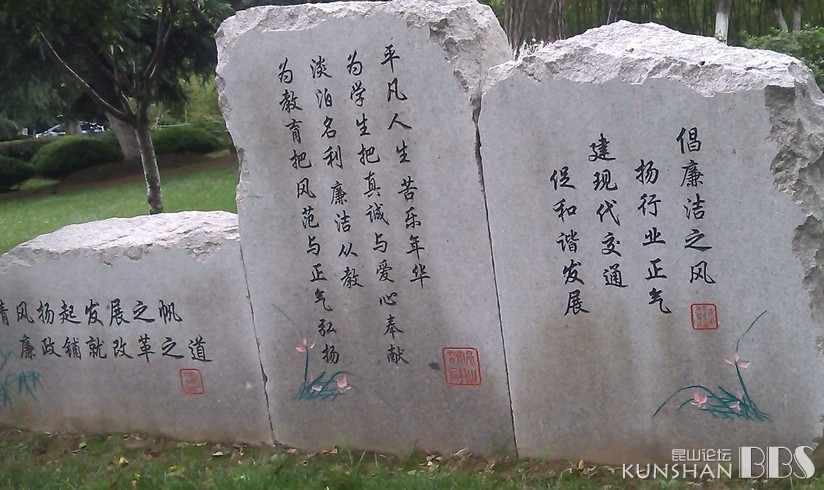 倡廉洁之风
扬行业正气
建现代交通
促和谐发展
平凡人生 苦乐年华
为学生把真诚与爱心奉献
淡泊名利 廉洁从教
为教育把风范与正气弘扬
清风扬起发展之帆
廉政铺就改革之道
昆山论坛
KUNSHAN BBS